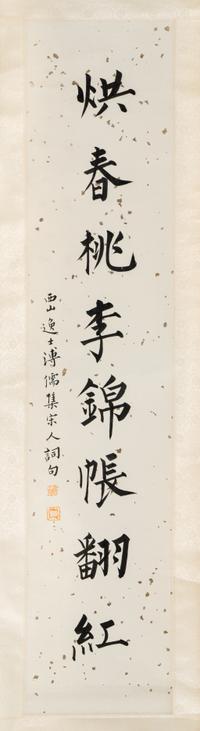 烘春桃李錦帳翻紅
西山逸士溥儒集宋人詞句